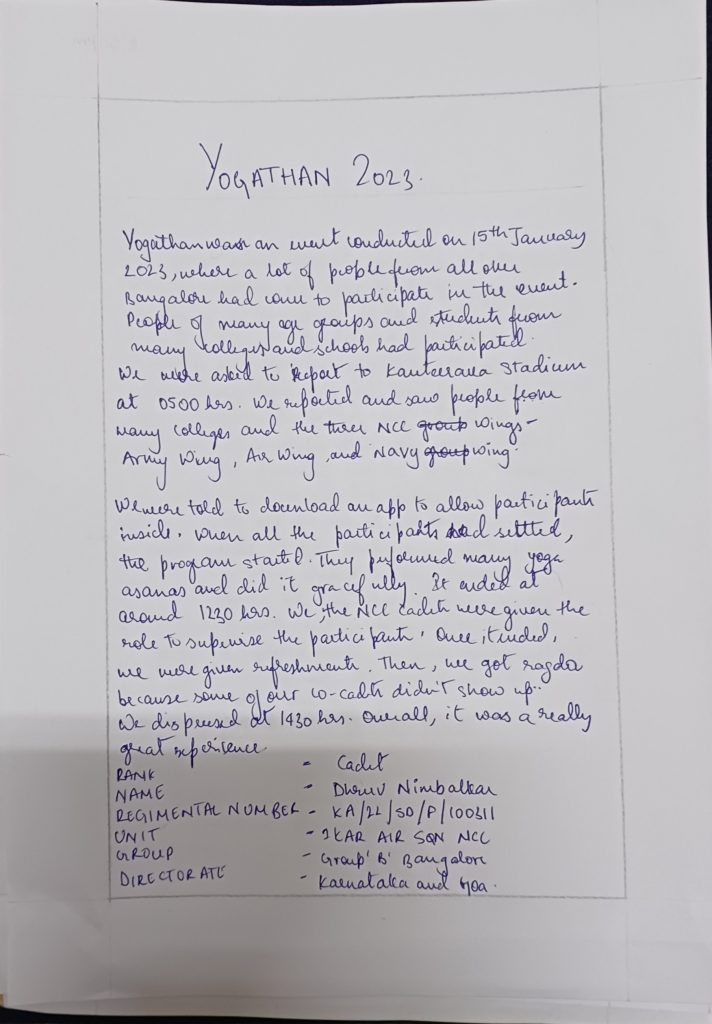 YOGATHAN 2023.
Yogathan was an event conducted on 15th January
2023, where a lot of people from all over
Bangalore had come to participate in the event.
People of many age groups and students from
many colleges and schools had participated.
We were asked to report to Kanteerava Stadium
at 0500 hrs. We reported and saw people from
many colleges and the three NCC group wings-
Army Wing, Air Wing, and Navy group wing.
We were told to download an app to allow participants
inside. When all the participants had settled,
the program started. They performed many yoga
asanas and did it gracefully. It ended at
around 1230 hrs. We, the NCC cadets were given the
role to supervise the participants. Once it ended,
we were given refreshments. Then, we got ragda
because some of our co-cadets didn't show up..
We dispersed at 1430 hrs. Overall, it was a really
great experience.
RANK - Cadet
NAME - Dhruv Nimbalkar
REGIMENTAL NUMBER - KA/22/SD/P/100311
UNIT - 2KAR AIR SQN NCC
GROUP - Group 'B' Bangalore
DIRECTORATE - Karnataka and Goa.